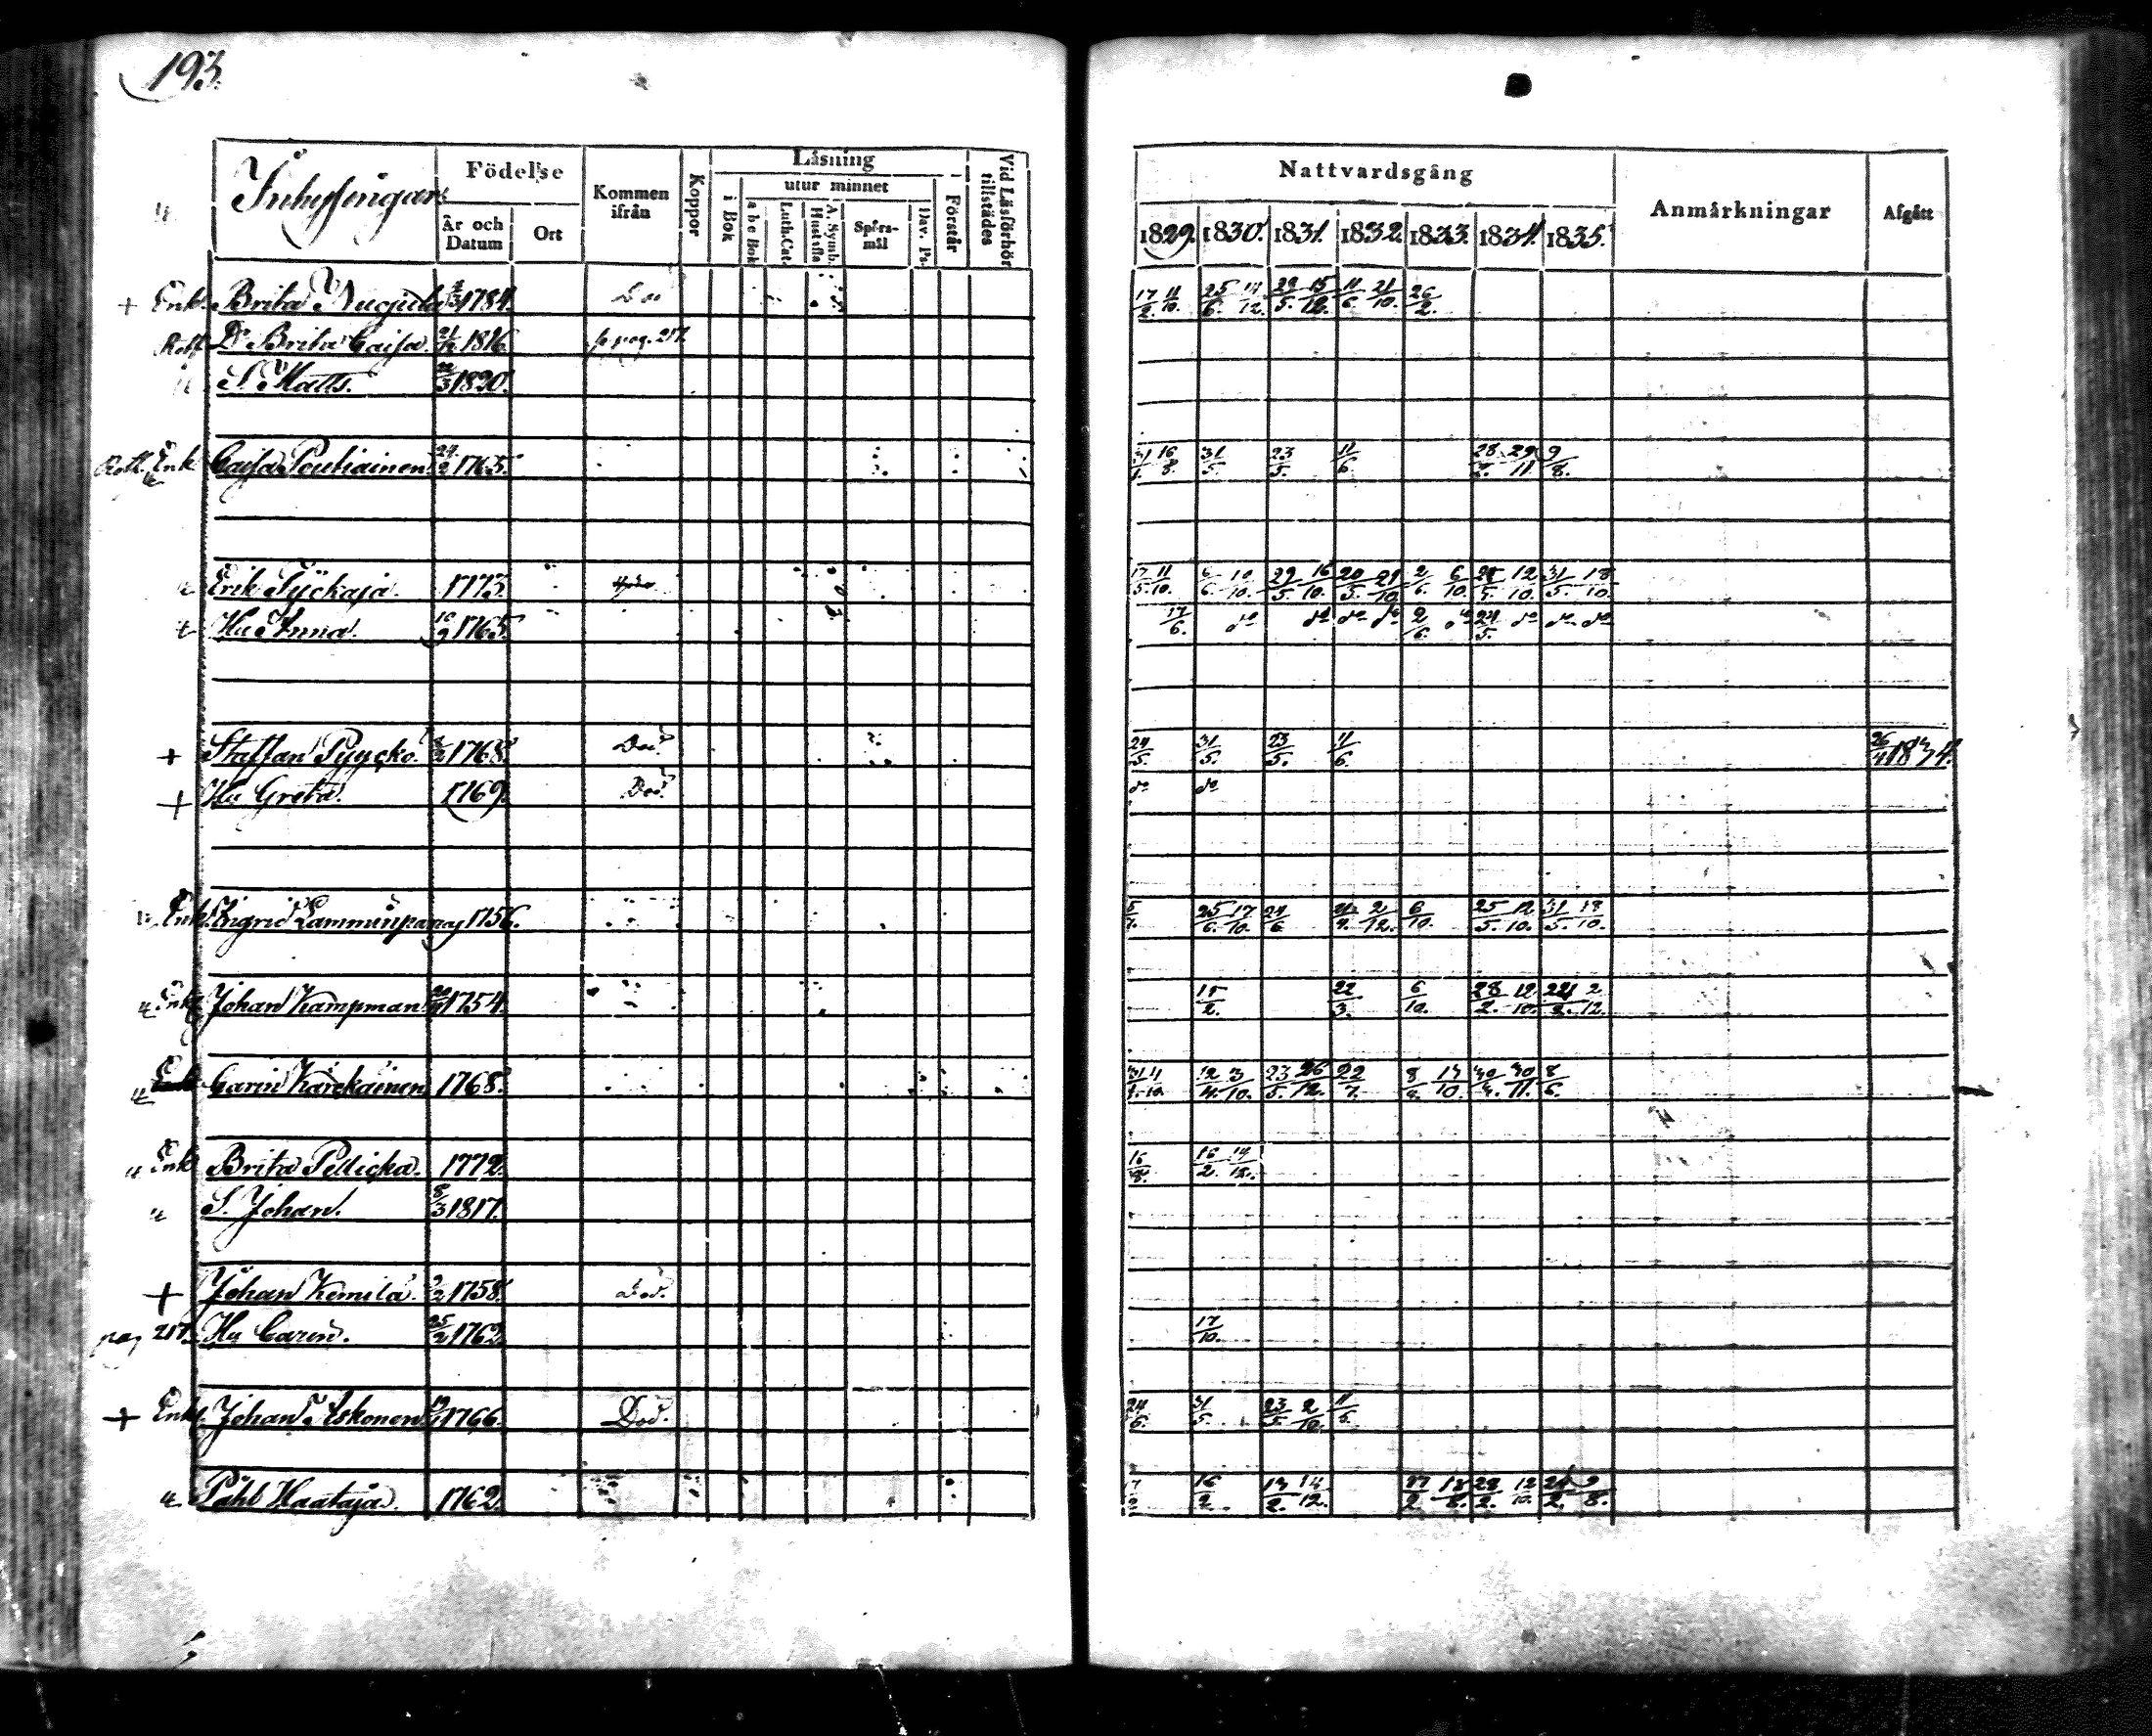 193.
Inhysingar
Födelse
År och Datum
Ort
Kommen ifrån
Koppor
Läsning
i Bok
utur minnet
a b c Bok
Luth. Cat.
A. Symb. Hustafla
Spörs-mål
Dav. Ps.
Förstår
Vid Läsförhör tillstädes
Nattvardsgång
1829. 1830. 1831. 1832. 1833. 1834. 1835.
Anmärkningar
Afgått
+ Enk. Brita 1784. 17/2 11/10. 25/6. 14/12. 29/5. 15/12. 11/6. 21/10. 26/2.
D. Brita Caisa. 1816. pag. 217.
S. Matts. 22/3 1820.
Enk. Caisa Poutiainen. 1765. 31/1. 16/8. 31/5. 23/5. 11/6. 28/2. 29/11 9/8.
Erik Tyckäjä. 1773. 17/5. 11/10. 6/6. 10/10. 29/5. 16/10. 20/5. 29/10 2/6. 6/10. 12/10. 31/5. 18/10.
Hu Anna. 1765. 17/6. do do do do 2/6. do 24/5. do do do
+ Staffan Pyycko. 1768. Död 24/5. 31/5. 23/5. 11/6. 26/4 1834.
+ Hu Greta. 1769. Död. do do
Enk. Ingrid Lamminparaj 1756. 25/6. 17/10. 24/6 2/12. 6/10. 25/5. 12/10. 31/5. 18/10.
Johan Kampman. 1754. 15/2. 22/3. 6/10. 28/2. 12/10. 2/12.
Carin Kärckäinen 1768. 12/4. 3/10. 23/5. 26/12. 22/7. 13/10. 30/11. 8/6.
Enk Brita Pellicka. 1772. 16/8. 16/2. 19/12.
S. Johan. 8/3 1817.
+ Johan Kemilä. 1758. Död.
pag 217. Hu Carin. 25/2 1762. 17/10.
+ Enkl. Johan Askonen 1766. Död. 24/5. 31/5. 23/5. 2/10. 11/6.
Påhl Haataja. 1762. 16/2. 13/2. 14/12. 17/2 18/8. 28/2. 12/10. 24/2. 9/8.